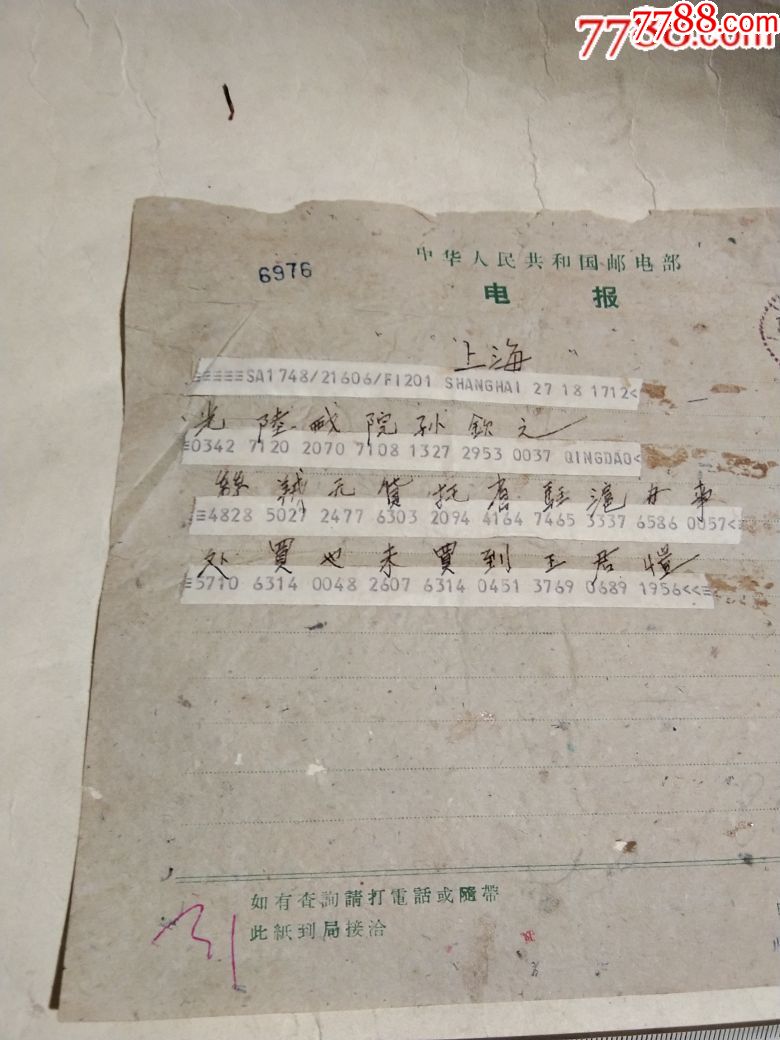 7788.com
7788.com
中华人民共和国邮电部
6976
电 报
上海
≡≡≡≡≡SA1748/21606/FI201 SHANGHAI 27 18 1712<
光 陸 戏 院 孙 欽 之
≡0342 7120 2070 7108 1327 2953 0037 QINGDAO<
絲 无 貨 托 省 駐 滬 办 事
≡4828 5027 2477 6303 2094 4164 7465 3337 6586 0057<≡
处 買 也 未 買 到 王 君 愷
≡5710 6314 0048 2607 6314 0451 3769 0689 1956<<≡
如有查詢請打電話或隨帶
此紙到局接洽